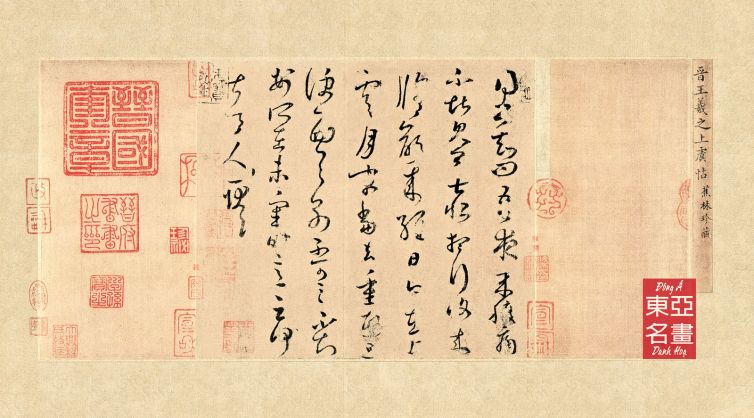 晉王羲之上虞帖 蕉林珍藏
得書知問吾夜來腹痛
不堪見卿甚恨想行復來
脩齡來經日今在上
虞月末當去重熙旦
便西與別不可言不知
安所在未審時意云何
甚令人耿耿
晉國奎章
晉府書畫之印
Đông Á
東亞
名畫
Danh Hoạ